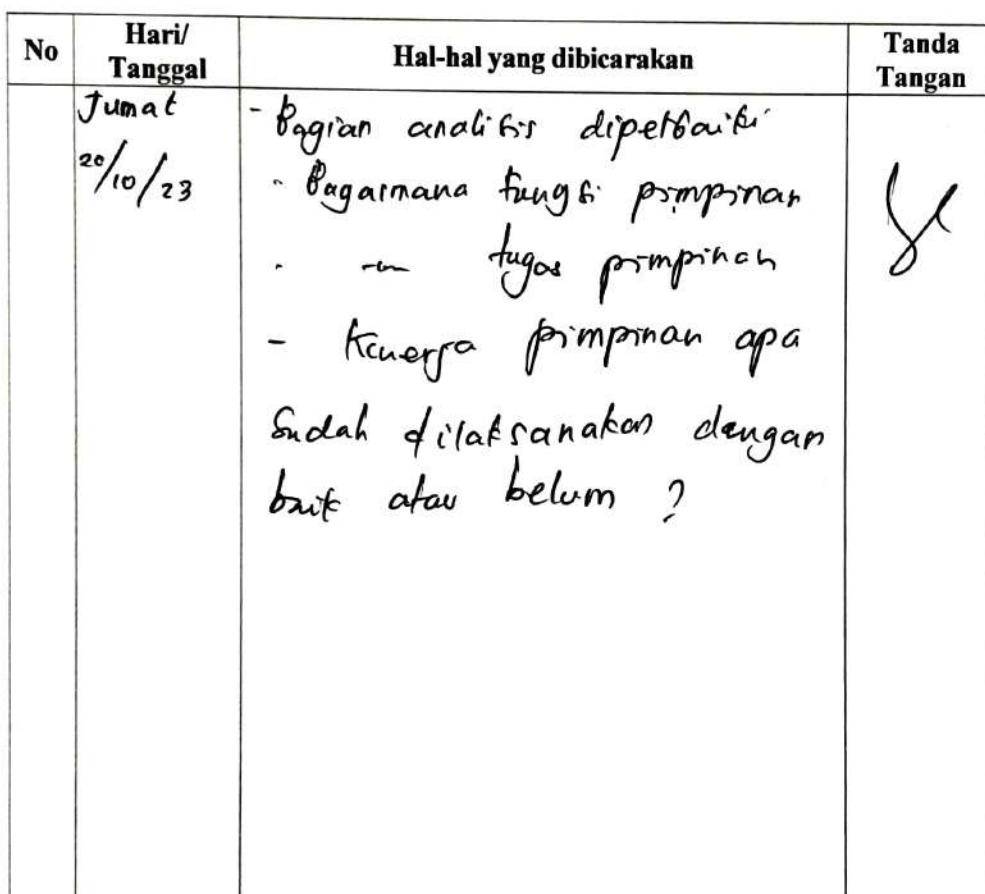 No
Hari/
Tanggal
Hal-hal yang dibicarakan
Tanda
Tangan
Jumat
20/10/23
- Bagian analisis diperbaiki
- Bagaimana fungsi pimpinan
- -"- tugas pimpinan
- Kinerja pimpinan apa
Sudah dilaksanakan dengan
baik atau belum ?